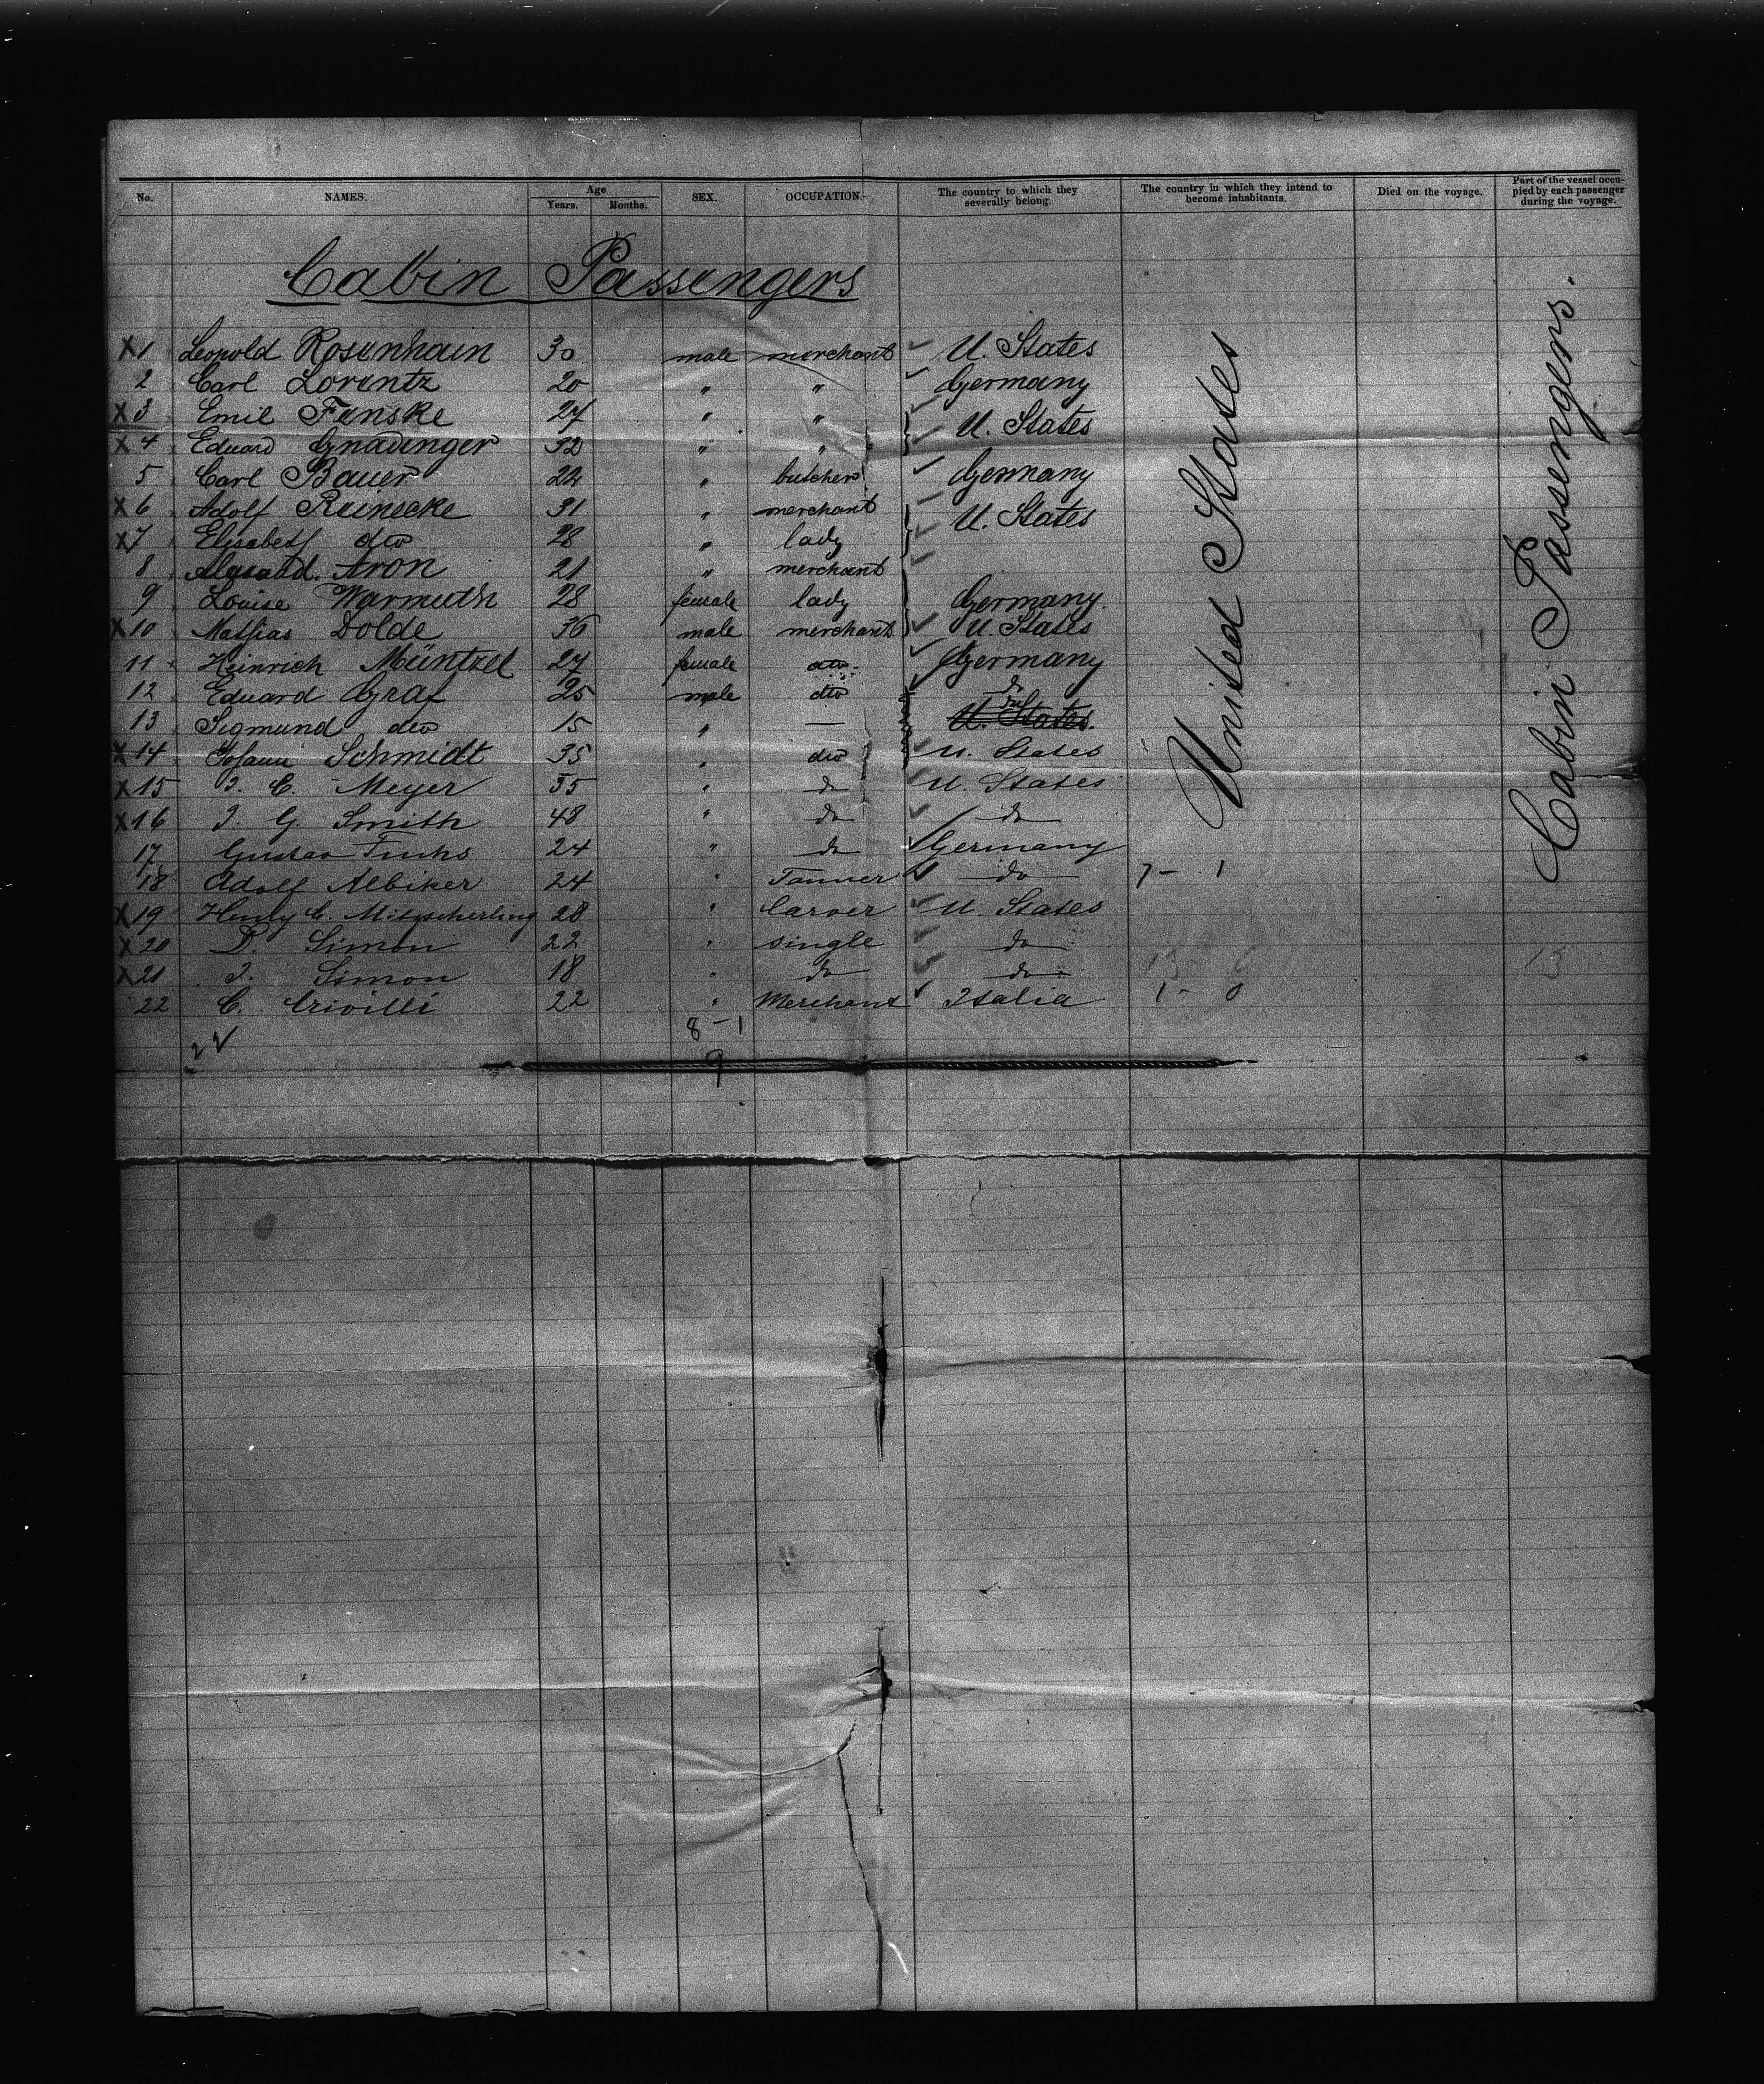 No. NAMES. Age Years. Months. SEX. OCCUPATION. The country to which they severally belong. The country in which they intend to become inhabitants. Died on the voyage. Part of the vessel occupied by each passenger during the voyage.
Cabin Passengers
X 1 Leopold Rosenhain 30 male merchant U. States
2 Carl Lorentz 20 " " Germany
X 3 Emil Fenske 27 " "
X 4 Eduard Gnadinger 32 " " U. States
5 Carl Bauer 22 " butcher Germany
X 6 Adolf Reinecke 31 " merchant
X 7 Elisabeth dto 28 " lady U. States
8 Aron 21 " merchant
9 Louise Warmuth 28 female lady Germany.
X 10 Mathias Dolde 36 male merchant U. States
11 Heinrich Müntzel 27 female dto. Germany
12 Eduard Graf 25 male dto do
13 Sigmund dto 15 " — U. States.
X 14 Johann Schmidt 35 " dto U. States
X 15 J. C. Meyer 55 " do U. States
X 16 J. G. Smith 48 " do do
17 Gustav Fuchs 24 " do Germany
18 Adolf Albiker 24 " Tanner do 7 - 1
X 19 Henry C. Mitzscherling 28 " Carver U. States
X 20 D. Simon 22 " single do
X 21 J. Simon 18 " do do 13 - 0 13
22 C. Crivilli 22 " Merchant Italia 1 - 0
22 8 - 1
9
United States
Cabin Passengers.